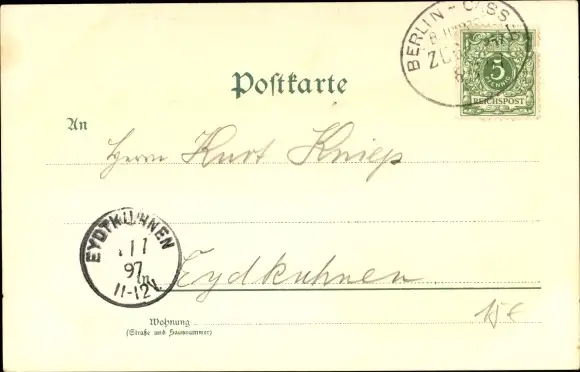 BERLIN - CASS
ZUG
5
REICHSPOST
Postkarte
An
Herrn Kurt Kniep
EYDTKUHNEN
1 1
97
11-12V.
in Eydkuhnen
15 €
Wohnung
(Straße und Hausnummer)